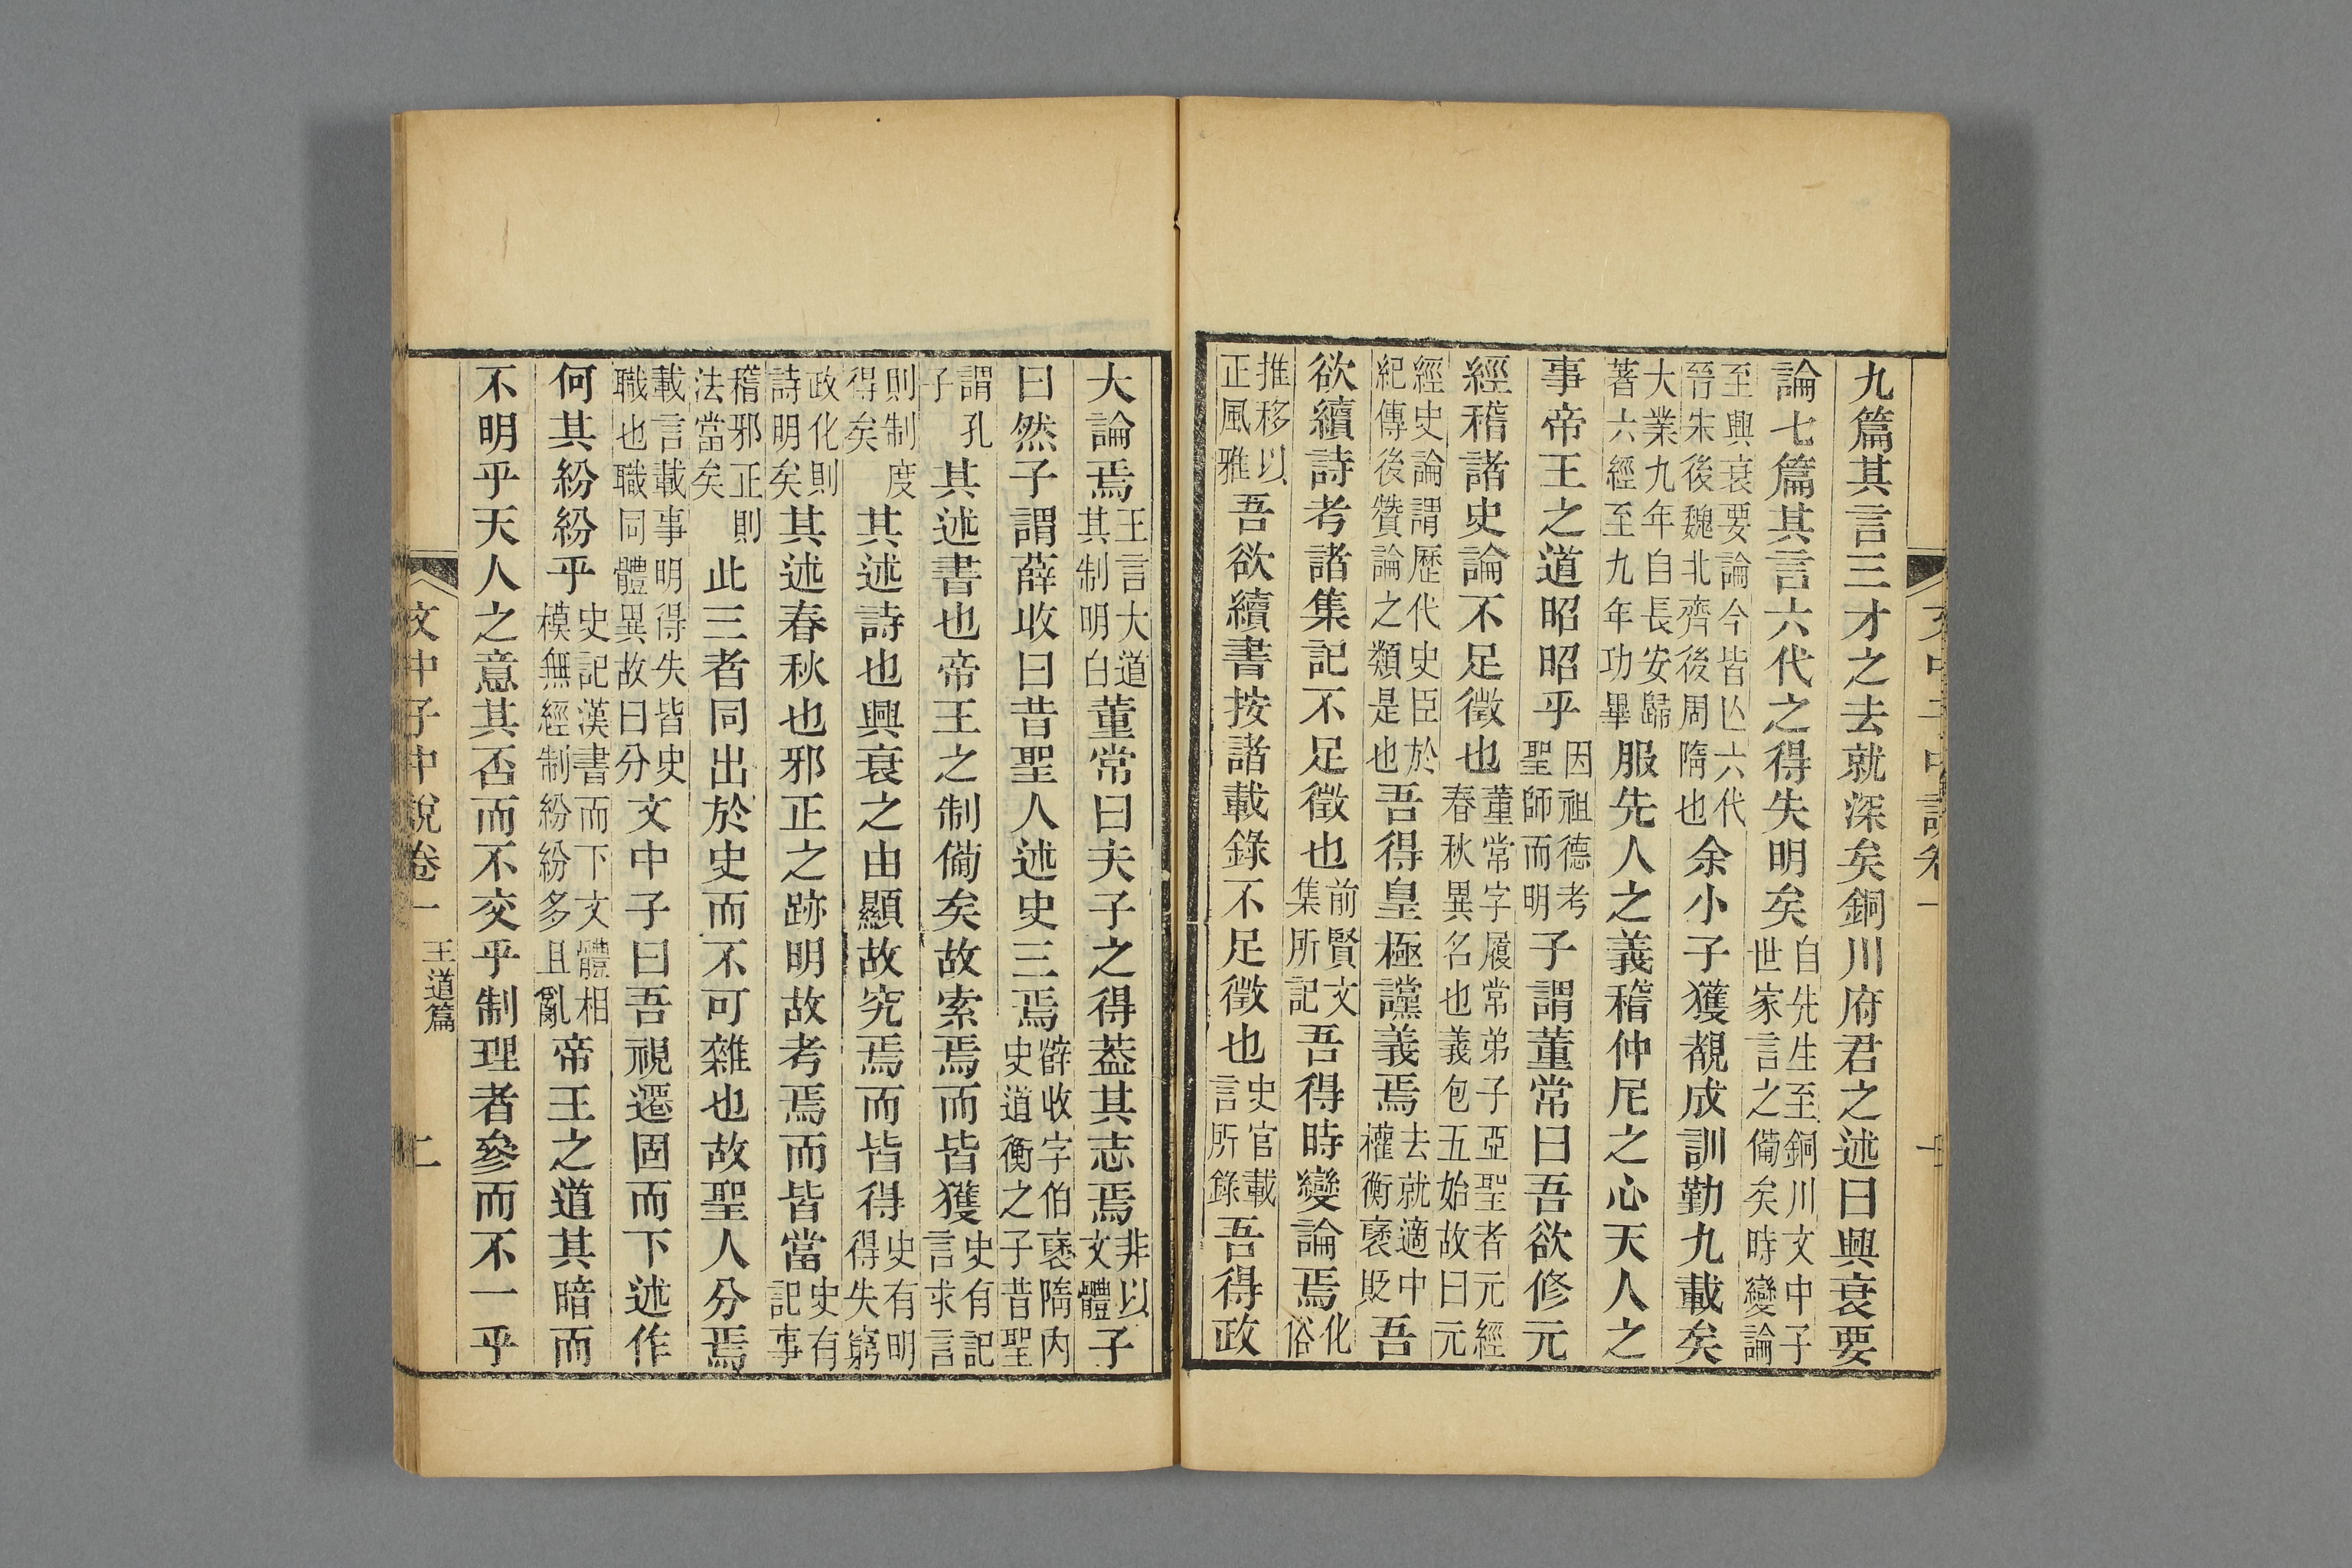 九篇其言三才之去就深矣銅川府君之述曰興衰要
論七篇其言六代之得失明矣自先生至銅川文中子世家言之僃矣時變論
至興衰要論今皆亾六代晉宋後魏北齊後周隋也余小子獲覩成訓勤九載矣
大業九年自長安歸著六經至九年功畢服先人之義稽仲尼之心天人之
事帝王之道昭昭乎因祖德考聖師而明子謂董常曰吾欲修元
經稽諸史論不足徵也董常字履常弟子亞聖者元經春秋異名也義包五始故曰元
經史論謂歷代史臣於紀傳後贊論之類是也吾得皇極讜義焉去就適中權衡褒貶吾
欲續詩考諸集記不足徵也前賢文集所記吾得時變論焉化俗
推移以正風雅吾欲續書按諸載錄不足徵也史官載言所錄吾得政
大論焉王言大道其制明白董常曰夫子之得葢其志焉非以文體子
曰然子謂薛收曰昔聖人述史三焉薛收字伯褒隋內史道衡之子昔聖
謂孔子其述書也帝王之制僃矣故索焉而皆獲史有記言求言
則制度得矣其述詩也興衰之由顯故究焉而皆得史有明得失窮
政化則詩明矣其述春秋也邪正之跡明故考焉而皆當史有記事
稽邪正則法當矣此三者同出於史而不可雜也故聖人分焉
載言載事明得失皆史職也職同體異故曰分文中子曰吾視遷固而下述作
何其紛紛乎史記漢書而下文體相模無經制紛紛多且亂帝王之道其暗而
不明乎天人之意其否而不交乎制理者參而不一乎
文中子中說卷一 王道篇